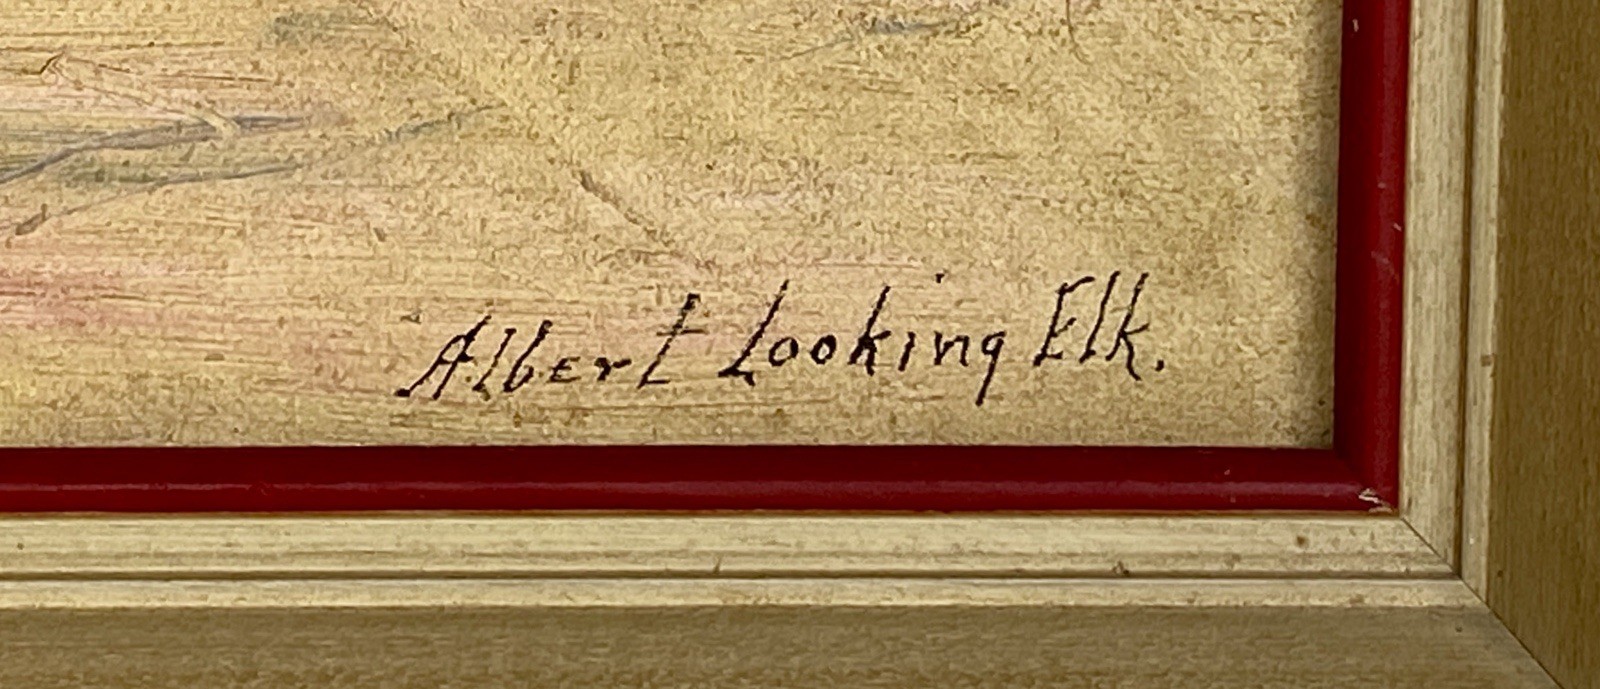 Albert Looking Elk.